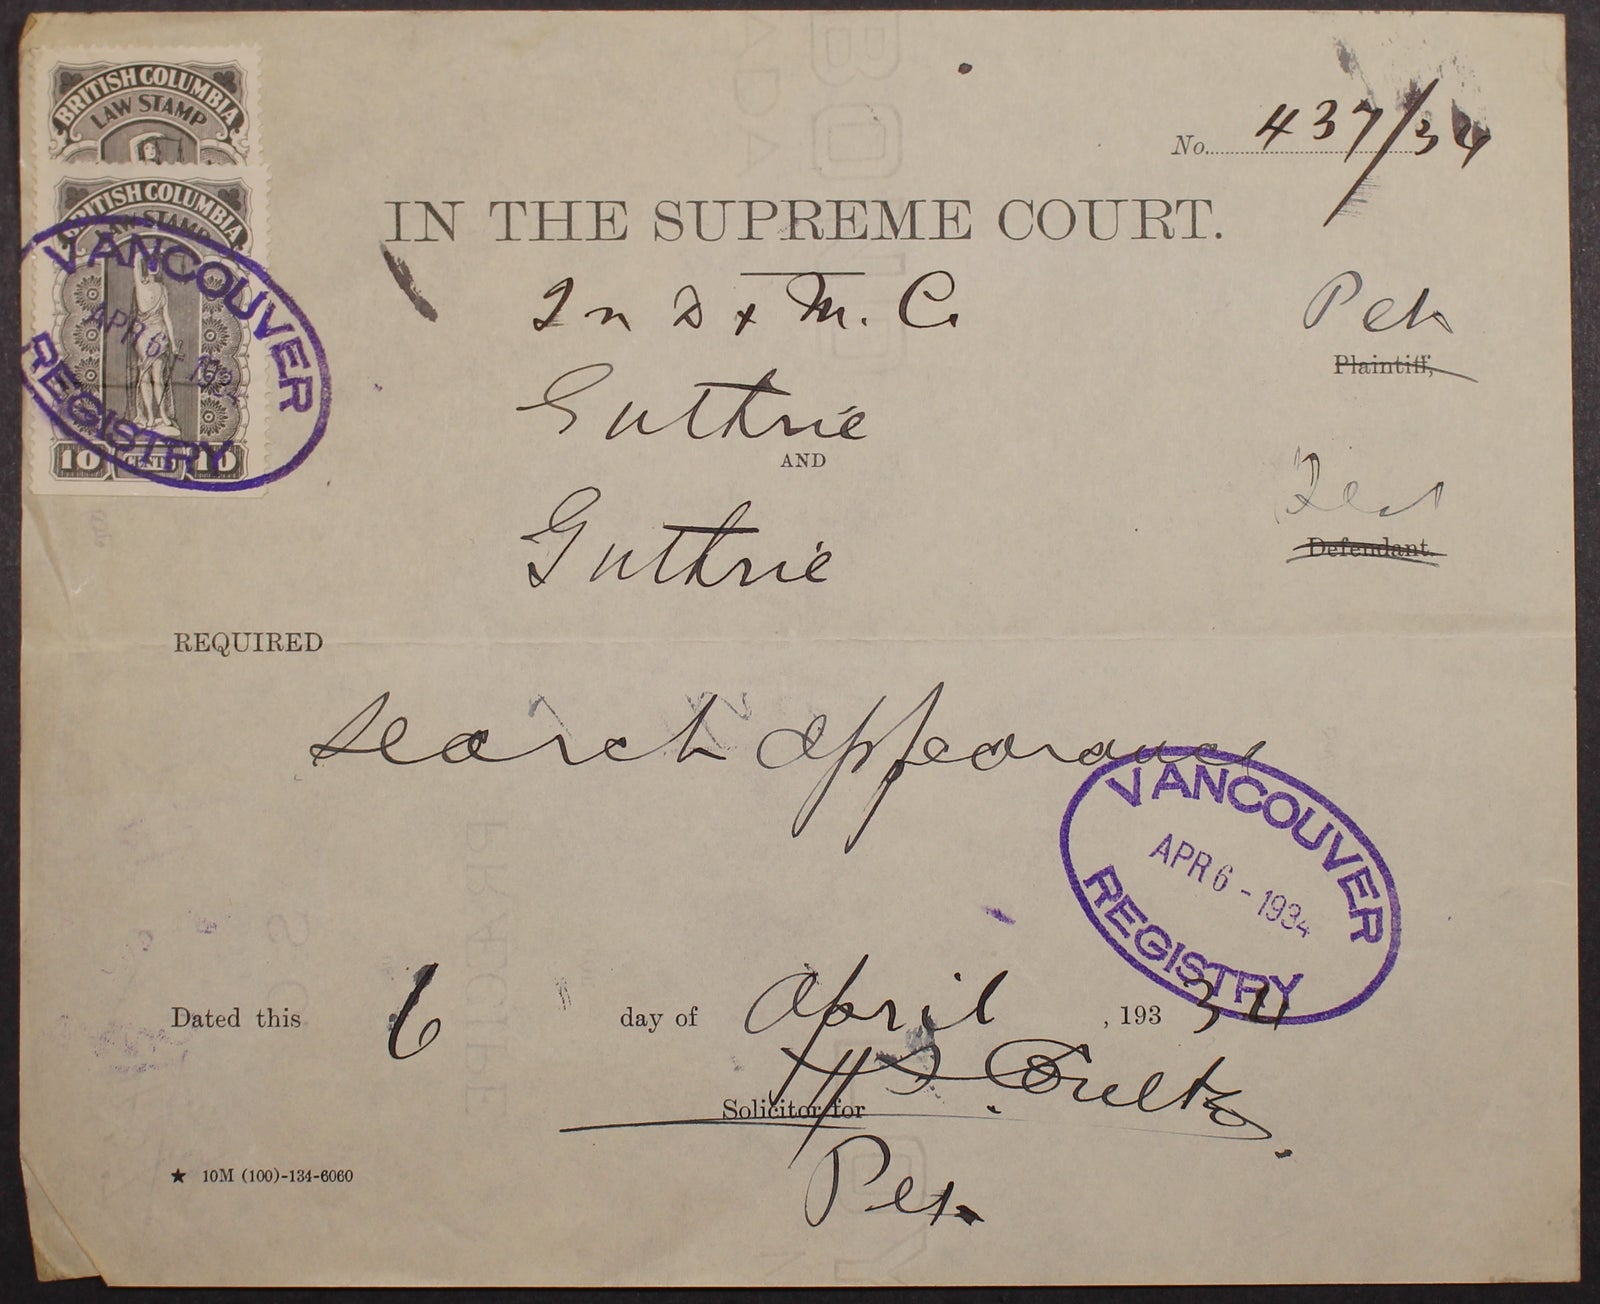 BRITISH COLUMBIA
LAW STAMP
BRITISH COLUMBIA
LAW STAMP
10 CENTS 10
VANCOUVER
APR 6 - 193
REGISTRY
No. 437/34
IN THE SUPREME COURT.
In D & M. C.
Pet
Plaintiff,
Guthrie
AND
Guthrie
Defendant.
REQUIRED
search appearance
VANCOUVER
APR 6 - 1934
REGISTRY
Dated this 6 day of April , 193 34
Solicitor for
Pet.
★ 10M (100)-134-6060
PRAECIPE